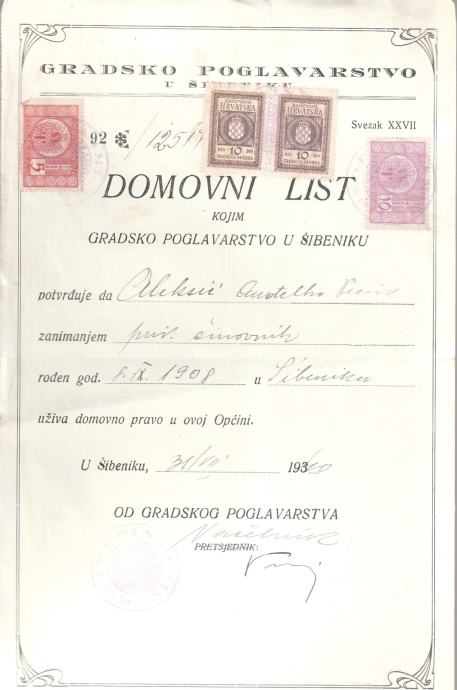 GRADSKO POGLAVARSTVO
U ŠIBENIKU
Svezak XXVII
BANOVINA HRVATSKA
DIN 10 DIN
TAKSENA MARKA
BANOVINA HRVATSKA
DIN 10 DIN
TAKSENA MARKA
5
10
92
DOMOVNI LIST
KOJIM
GRADSKO POGLAVARSTVO U ŠIBENIKU
potvrđuje da Aleksić Anđelko
zanimanjem priv. činovnik
rođen god. 8. IX. 1908 u Šibeniku
uživa domovno pravo u ovoj Općini.
U Šibeniku, 31/VII 1940
OD GRADSKOG POGLAVARSTVA
Načelnik
PRETSJEDNIK: